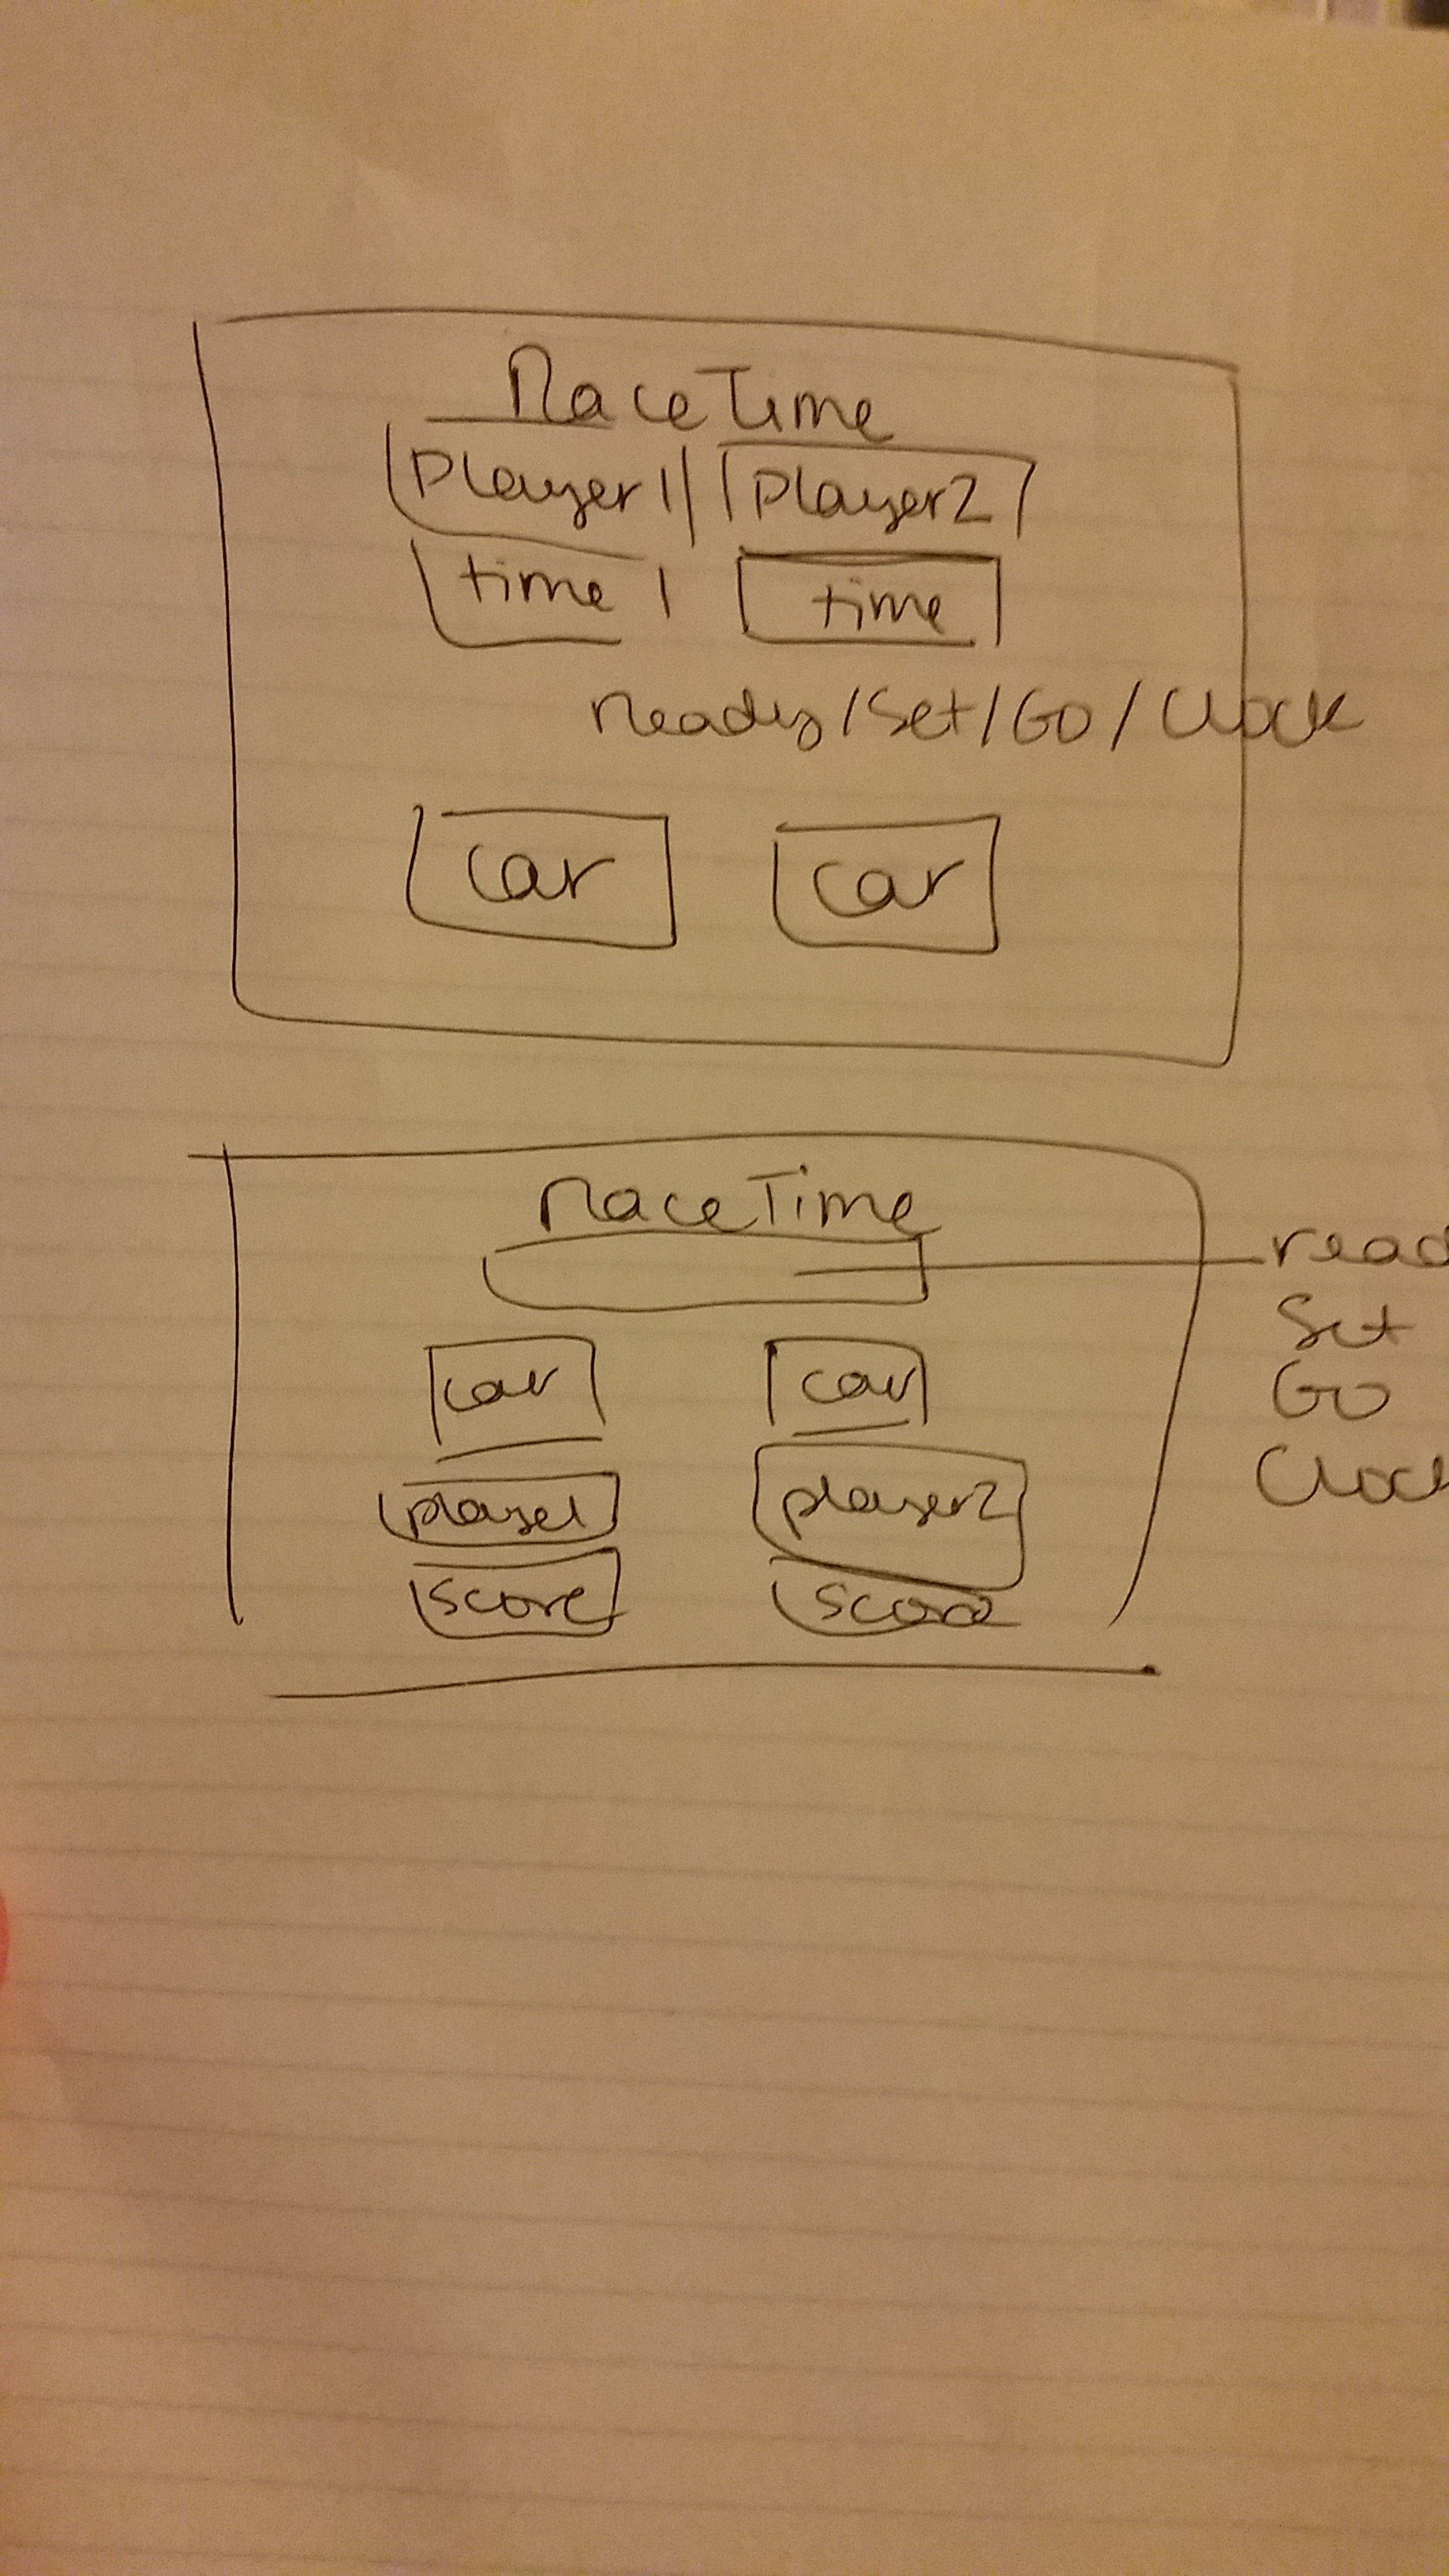 RaceTime
Player1 Player2
time time
ready/Set/Go/Clock
car car
RaceTime
read
Set
car car
Go
Clock
player2
score